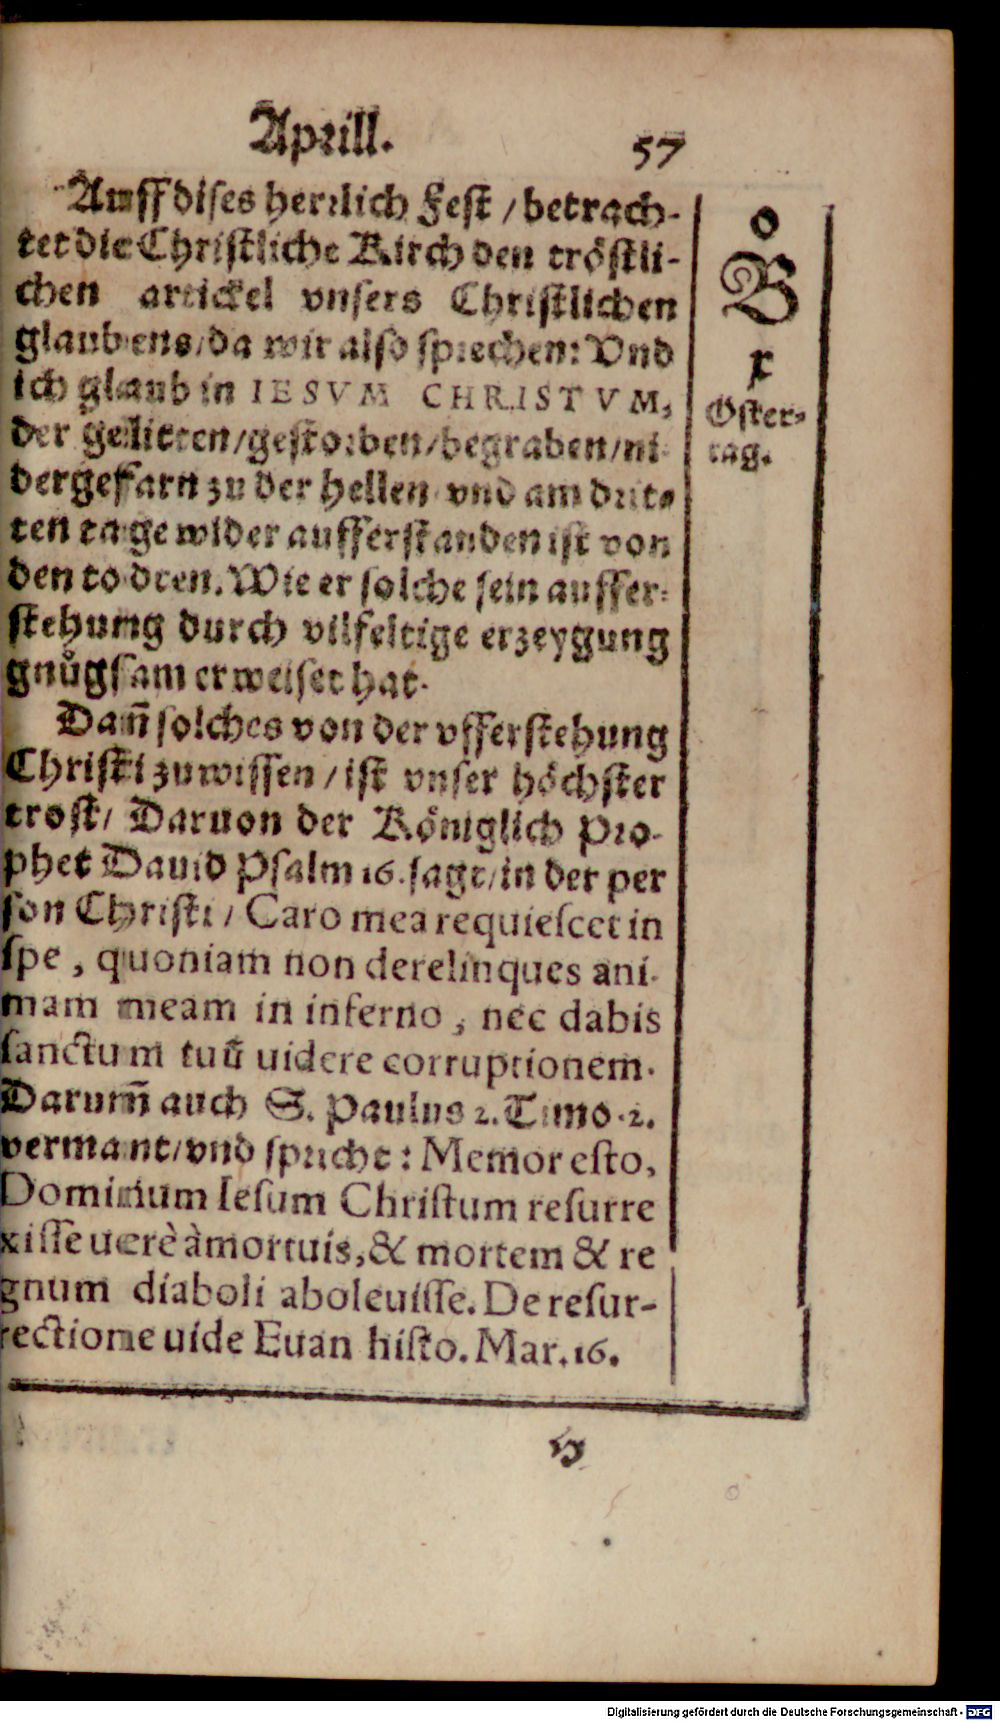 Aprill.
57
Auff dises herrlich Fest / betrach-
tet die Christliche Kirch den tröstli-
chen artickel vnsers Christlichen
glaubens / da wir also sprechen: Vnd
ich glaub in IESVM CHRISTVM,
der gelitten / gestorben / begraben / ni-
dergeffarn zu der hellen vnd am drit-
ten tage wider aufferstanden ist von
den todten. Wie er solche sein auffer-
stehung durch vilfeltige erzeygung
gnůgsam erweiset hat.
Dañ solches von der vfferstehung
Christi zuwissen / ist vnser höchster
trost / Daruon der Königlich Pro-
phet Dauid Psalm 16. sagt / in der per
son Christi / Caro mea requiescet in
spe, quoniam non derelinques ani-
mam meam in inferno, nec dabis
sanctum tuũ uidere corruptionem.
Darum̃ auch S. Paulus 2. Timo. 2.
vermant / vnd spricht: Memor esto,
Dominum Iesum Christum resurre
xisse uerè à mortuis, & mortem & re
gnum diaboli aboleuisse. De resur-
rectione uide Euan histo. Mar. 16.
o
B
r
Oster-
tag.
H
Digitalisierung gefördert durch die Deutsche Forschungsgemeinschaft - DFG